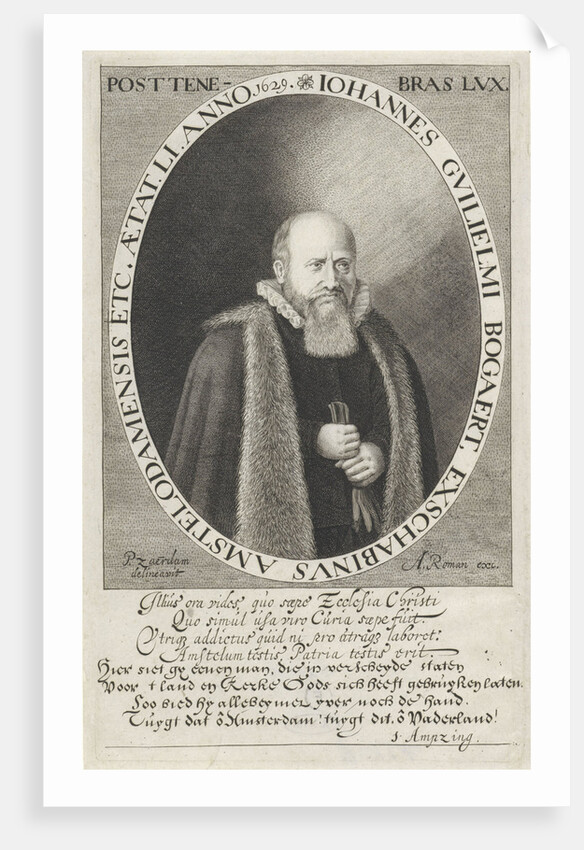 POST TENE- BRAS LVX.
IOHANNES GVILIELMI BOGAERT, EXSCHABINVS AMSTELODAMENSIS ETC. ÆTAT. LI. ANNO. 1629.
P. Zaerdam
delineavit
A. Roman exc.
Illius ora vides, quo sæpe Ecclesia Christi
Quo simul usa viro Curia sæpe fuit.
Utriq3 addictus quid ni pro utraq3 laboret:
Amstelum testis, Patria testis erit.
Hier siet gy eenen man, die in verscheyde staten
Voor 't land en Kerke Gods sich heeft gebruyken laten.
Soo bied hy allebey met yver noch de hand.
Tuygt dat ô Amsterdam! tuygt dit ô Vaderland!
S. Ampzing.